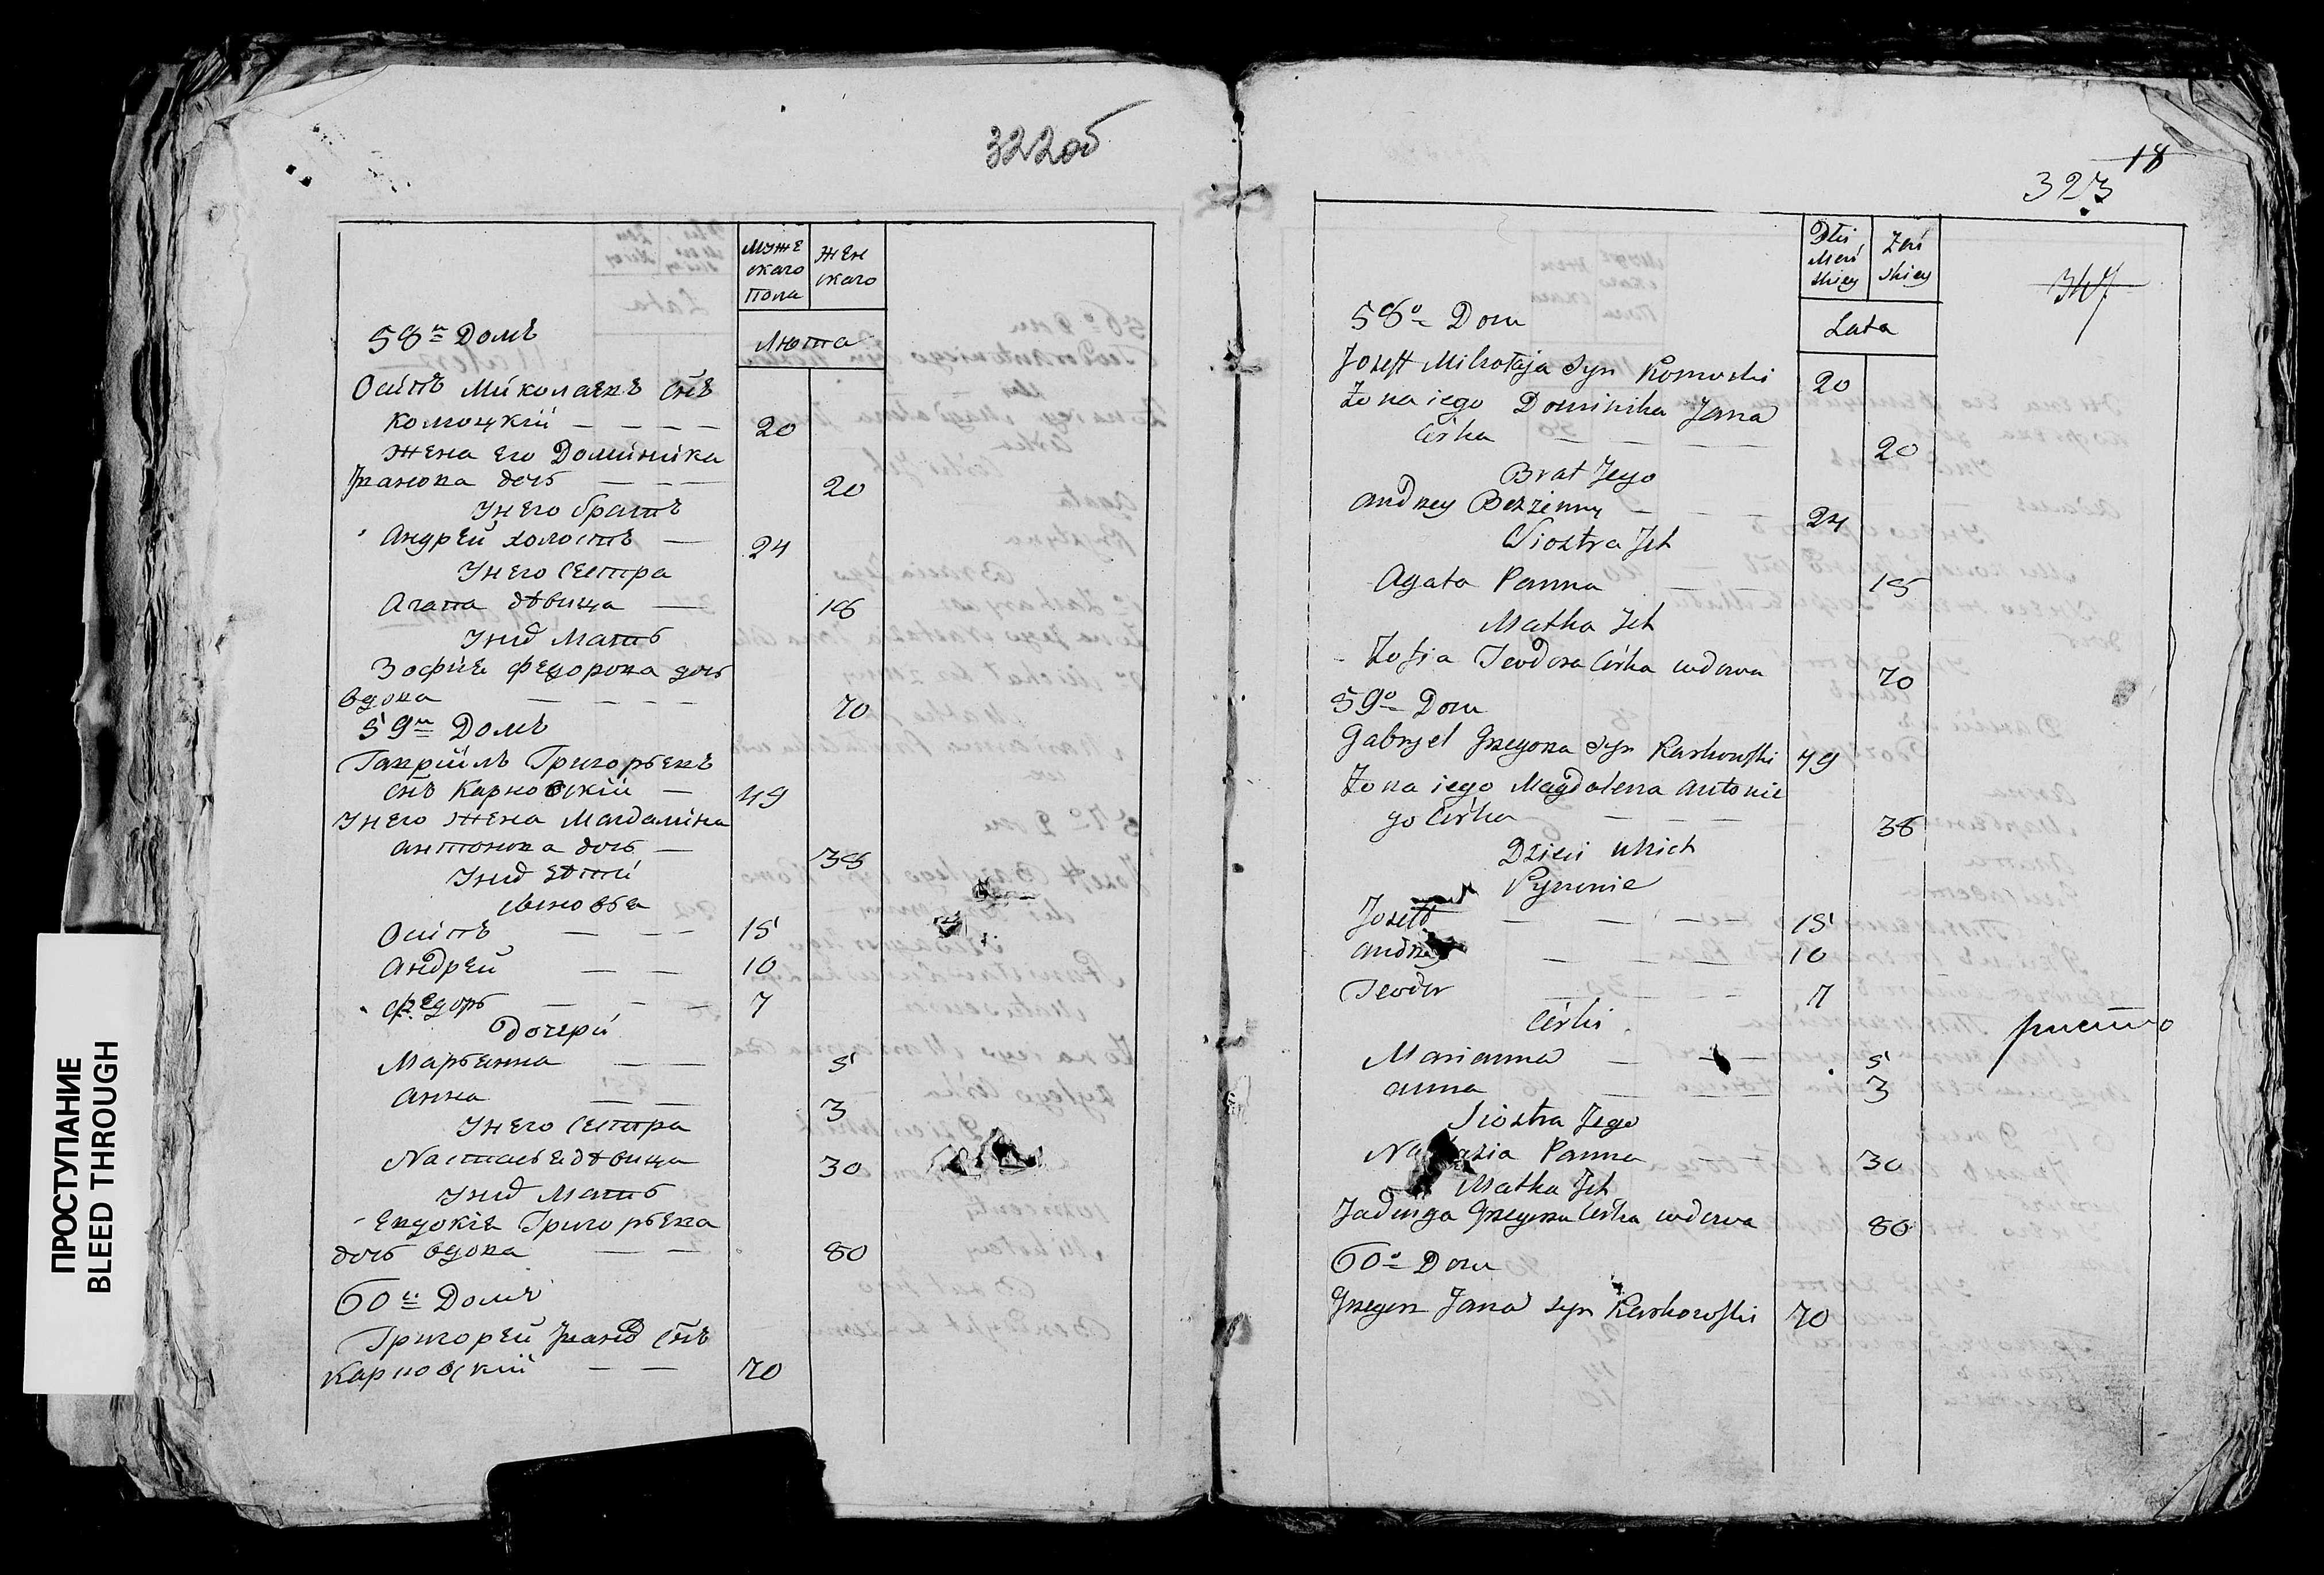 322об
Муже
скаго
Пола
Жен
скаго
Люта
58й Домъ
Осипъ Миколаевъ снъ
Комоцкiй 20
Жена Его Доминика
Иванова дочь 20
У него братъ
Андрей холостъ 24
У него Сестра
Агата дѣвица 18
У нихъ Мать
Зофiя Федорова дочь
вдова 70
59й Домъ
Гаврiилъ Григорьевъ
снъ Карновскiй 49
У него Жена Магдалина
Антонова дочь 38
У нихъ дѣти
сыновья
Осипъ 15
Андрей 10
Федоръ 7
Дочери
Марьянна 5
Анна 3
У него Сестра
Настасья дѣвица 30
У нихъ Мать
Евдокiя Григорьева
дочь вдова 80
60й Домъ
Григорей Ивановъ Снъ
Карновскiй 70
ПРОСТУПАНИЕ
BLEED THROUGH
18
323
347
Płci
Męs
skiey
Żeń
skiey
Lata
58o Dom
Jozeff Mikołaja Syn 20
Żona iego Dominika Jana
Córka 20
Brat Jego
Andrzey Bezżenny 24
Siostra Ich
Agata Panna 18
Matka Ich
Zofia Teodora Córka wdowa 70
59o Dom
Gabryel Grzegorza Syn Karkowski 49
Żona iego Magdalena Antonie
go Córka 38
Dzieci u Nich
Synowie
Jozeff 15
Andrzey 10
Teodor 7
Córki
Marianna 5
Anna 3
Siostra Jego
Nastazia Panna 30
Matka Ich
Jadwiga Grzegorza Córka wdowa 80
60o Dom
Grzegorz Jana Syn Karkowski 70